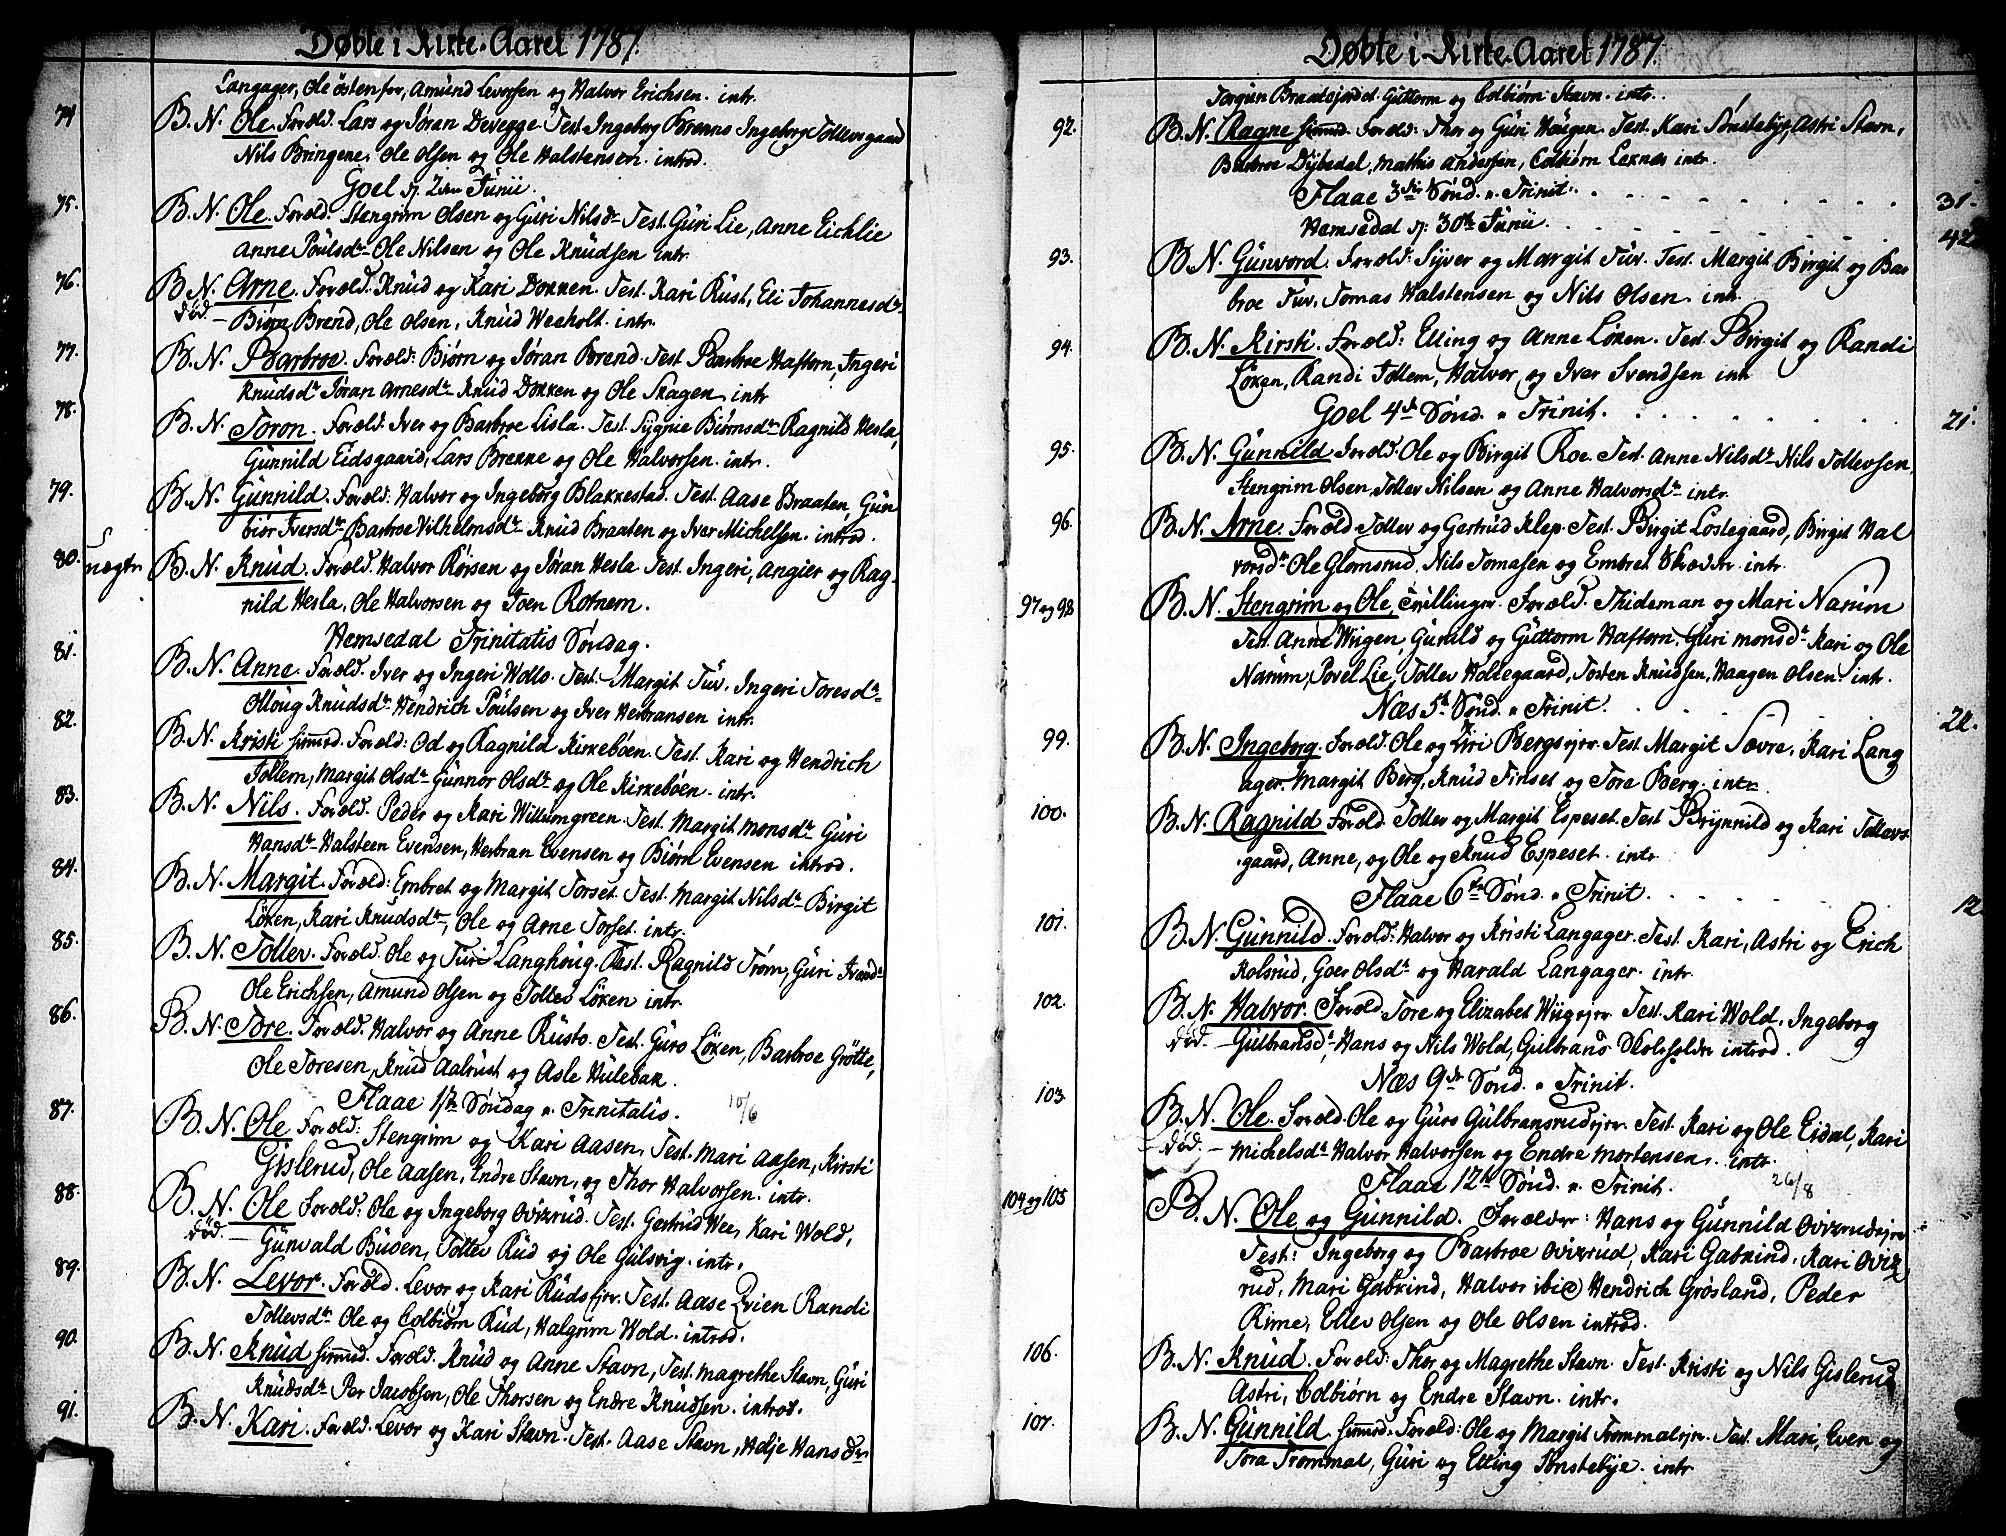 Døbte i Kirke-Aaret 1787.
Langager, Ole östenfor, Amund Levorsen og Halvor Erichsen. intr.
74 B. N. Ole. Foræld. Lars og Jöran Devegge. Test. Ingeborg Ingeborg Tollevsgaard
Nils Bringene, Ole Olsen og Ole Halstensen. introd.
Goel d. 2den Junii.
75. B. N. Ole. Foræld. Stengrim Olsen og Guri Nilsdr Test. Guri Lie, Anne Eichlie
Anne Poulsdr Ole Nilsen og Ole Knudsen intr.
76. B. N. Arne. Foræld. Knud og Kari Dokken. Test. Kari Rust, Eli Johannesdr
død. – Biørn Brend, Ole Olsen, Knud Weeholt. intr.
77. B. N. Barbroe. Foræld: Biørn og Jöran Brend. Test. Barbroe Haftorn, Ingeri
Knudsdr Jöran Arnesdr Knud Dokken og Ole Skagen intr
78. B. N. Joron. Foræld. Iver og Barbroe Lisla. Test. Sygnie Biörnsdr Ragnild Hesla,
Gunnild Eidsgaard, Lars Brekke og Ole Halvorsen. intr.
79. B. N. Gunnild. Foræld. Halvor og Ingeborg Blakkestad. Test. Aase Braaten, Gun
biör Iversdr Barbroe Vilhelmsdr Knud Braaten og Iver Michelsen. introd.
80. uægte B. N. Knud. Foræld. Halvor Rörsen og Jöran Hesla Test. Ingeri, Angier og Rag-
nild Hesla, Ole Halvorsen og Joen Rotnem.
Hemsedal Trinitatis Söndag.
81. B. N. Anne. Foræld. Iver og Ingeri Wollo. Test. Margit Tuv. Ingeri Toresdr
Olloug Knudsdr Hendrich Poulsen og Iver Herbransen intr.
82. B. N. Kristi hiemd. Foræld: Od og Ragnild Kirkeböen. Test. Kari og Hendrich
Tollem, Margit Olsdr Gunnor Olsdr og Ole Kirkebøen. intr.
83. B. N. Nils. Foræld. Peder og Kari Willumgreen. Test. Margit Monsdr Guri
Hansdr Halsteen Evensen, Herbran Evensen og Biørn Evensen introd.
84. B. N. Margit. Foræld: Embret og Margit Torset. Test. Margit Nilsdr Birgit
Löken, Kari Knudsdr, Ole og Arne Torset. intr.
85. B. N. Tollev. Foræld. Ole og Turi Langhoug. Test. Ragnild Tröm, Guri
Ole Erichsen, Amund Olsen og Tollev Löken intr.
86. B. N. Tore. Foræld. Halvor og Anne Rusto. Test. Guro Löken, Barbroe Grötte,
Ole Toresen, Knud Aalrust og Asle Hulebak.
Flaae 1ste Söndag p. Trinitatis. 10/6
87. B. N. Ole Foræld: Stengrim og Kari Aasen, Test. Mari Aasen, Kirsti
Gislerud, Ole Aasen, Endre Stavn, og Thor Halvorsen. intr.
88. B. N. Ole Foræld: Ole og Ingeborg Ovizrud. Test. Gertrud Wee, Kari Wold,
død. – Gunvald Buöen, Tollev Rud og Ole Gulsvig. intr.
89. B. N. Levor. Foræld. Levor og Kari Rudsejer. Test. Aase Qvien Randi
Tollevsdr Ole og Colbiörn Rud, Halgrim Wold. introd.
90. B. N. Knud hiemd. Foræld. Knud og Anne Stavn, Test. Magrethe Stavn, Guri
Knudsdr Per Jacobsen, Ole Thorsen og Endre Knudsen. introd.
91. B. N. Kari. Foræld. Levor og Kari Stavn. Test. Aase Stavn, Helje Hansdr
Døbte i Kirke-Aaret 1787.
Torgun Braatsjordet Guttorm og Colbiørn Stavn. intr.
92. B. N. Ragne hiemd. Foræld: Thor og Guri Haugen. Test. Kari Sönstebye, Astri Stavn,
Barbroe Dybedal, Mathis Andersen, Colbiørn Leknes intr.
Flaae 3die Sönd. p. Trinit. 31.
Hemsedal d. 30te Junii. 42
93. B. N. Gunvord. Foræld: Syver og Margit Tuv. Test. Margit Birgit og Bar
broe Tuv, Tomas Halstensen og Nils Olsen. intr.
94. B. N. Kirsti. Foræld: Elling og Anne Löken. Test. Birgit og Randi
Löken, Randi Tollem, Halvor og Iver Svendsen intr
Goel 4de Sönd. p. Trinit. 21.
95. B. N. Gunnild Foræld: Ole og Birgit Roe Test. Anne Nilsdr Nils Tollevsen
Stengrim Olsen, Tollev Nilsen og Anne Halvorsdr intr.
96. B. N. Arne. Foræld Tollev og Gertrud Klep. Test. Birgit Lostegaard, Birgit Hal
vorsdr Ole Glomsrud, Nils Tomasen og Embret Skrædder intr.
97 og 98 B. N. Stengrim og Ole, Tvillinger. Foræld. Thideman og Mari Narum
Test. Anne Wiigen, Gunild og Guttorm Haftorn. Guri Monsdr Kari og Ole
Narum, Povel Lie, Tollev Holtegaard, Tosten Knudsen, Haagen Olsen. intr.
Næs 5te Sönd. p. Trinit. 22.
99. B. N. Ingeborg. Foræld. Ole og Liri Bergsejer. Test. Margit Sevre, Kari Lang
ager. Margit Berg, Knud Finset og Tore Berg. intr.
100. B. N. Ragnild Foræld. Tollev og Margit Espeset. Test Brynnild og Kari Tollevs
gaard, Anne, og Ole og Knud Espeset. intr
Flaae 6te Sönd. p. Trinit. 12.
101. B. N. Gunnild. Foræld: Halvor og Kristi Langager. Test. Kari, Astri og Erich
Kolsrud, Goer Olsdr og Harald Langager. intr.
102. B. N. Halvor. Foræld. Tore og Elizabet Wiigejer. Test. Kari Wold. Ingeborg
død. – Gulbransdr Hans og Nils Wold, Gulbrand Skoleholder introd.
Næs 9de Sönd. p. Trinit.
103. B. N. Ole. Foræld. Ole og Guro Gulbransrudejer. Test. Kari og Ole Eidal, Kari
død. – Michelsdr Halvor Halvorsen og Endre Mortensen. intr.
Flaae 12te Sönd. p. Trinit. 26/8
104 og 105 B. N. Ole og Gunnild. Forælder: Hans og Gunnild Ovizrudejer
Test: Ingeborg og Barbroe Ovizrud, Kari Gabkind, Kari Oviz
rud, Mari Gabkind, Halvor ibid Hendrich Grösland, Peder
Rime, Ellev Olsen og Ole Olsen introd.
106. B. N. Knud. Foræld: Thor og Magrethe Stavn. Test. Kristi og Nils Gislerud
Astri, Colbiørn og Endre Stavn. intr.
107. B. N. Gunnild hiemd. Foræld: Ole og Margit Trommalsejer. Test. Mari, Even og
Tora Trommal, Guri og Elling Sönstebye. intr